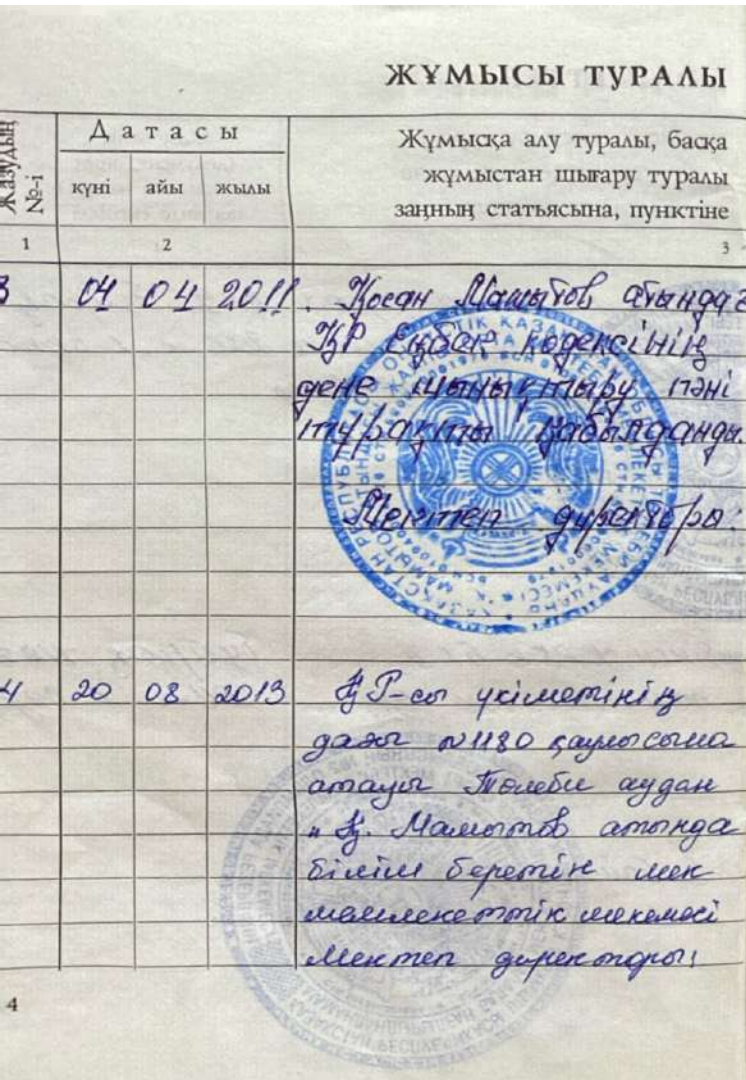 ЖҰМЫСЫ ТУРАЛЫ
Жазудың №-і
Датасы
күні айы жылы
Жұмысқа алу туралы, басқа
жұмыстан шығару туралы
заңның статьясына, пунктіне
1 2 3
3 04 04 2011. Қосан Мамытов атында
ҚР Еңбек кодексінің
дене шынықтыру пәні
тұрақты қабылданды.
Мектеп директоры:
4 20 08 2013 ҚР-сы үкіметінің
дағы №1180 қаулысына
атауы Төлеби аудан
"Қ. Мамытов атында
білім беретін мек
мемлекеттік мекемесі
Мектеп директоры:
4